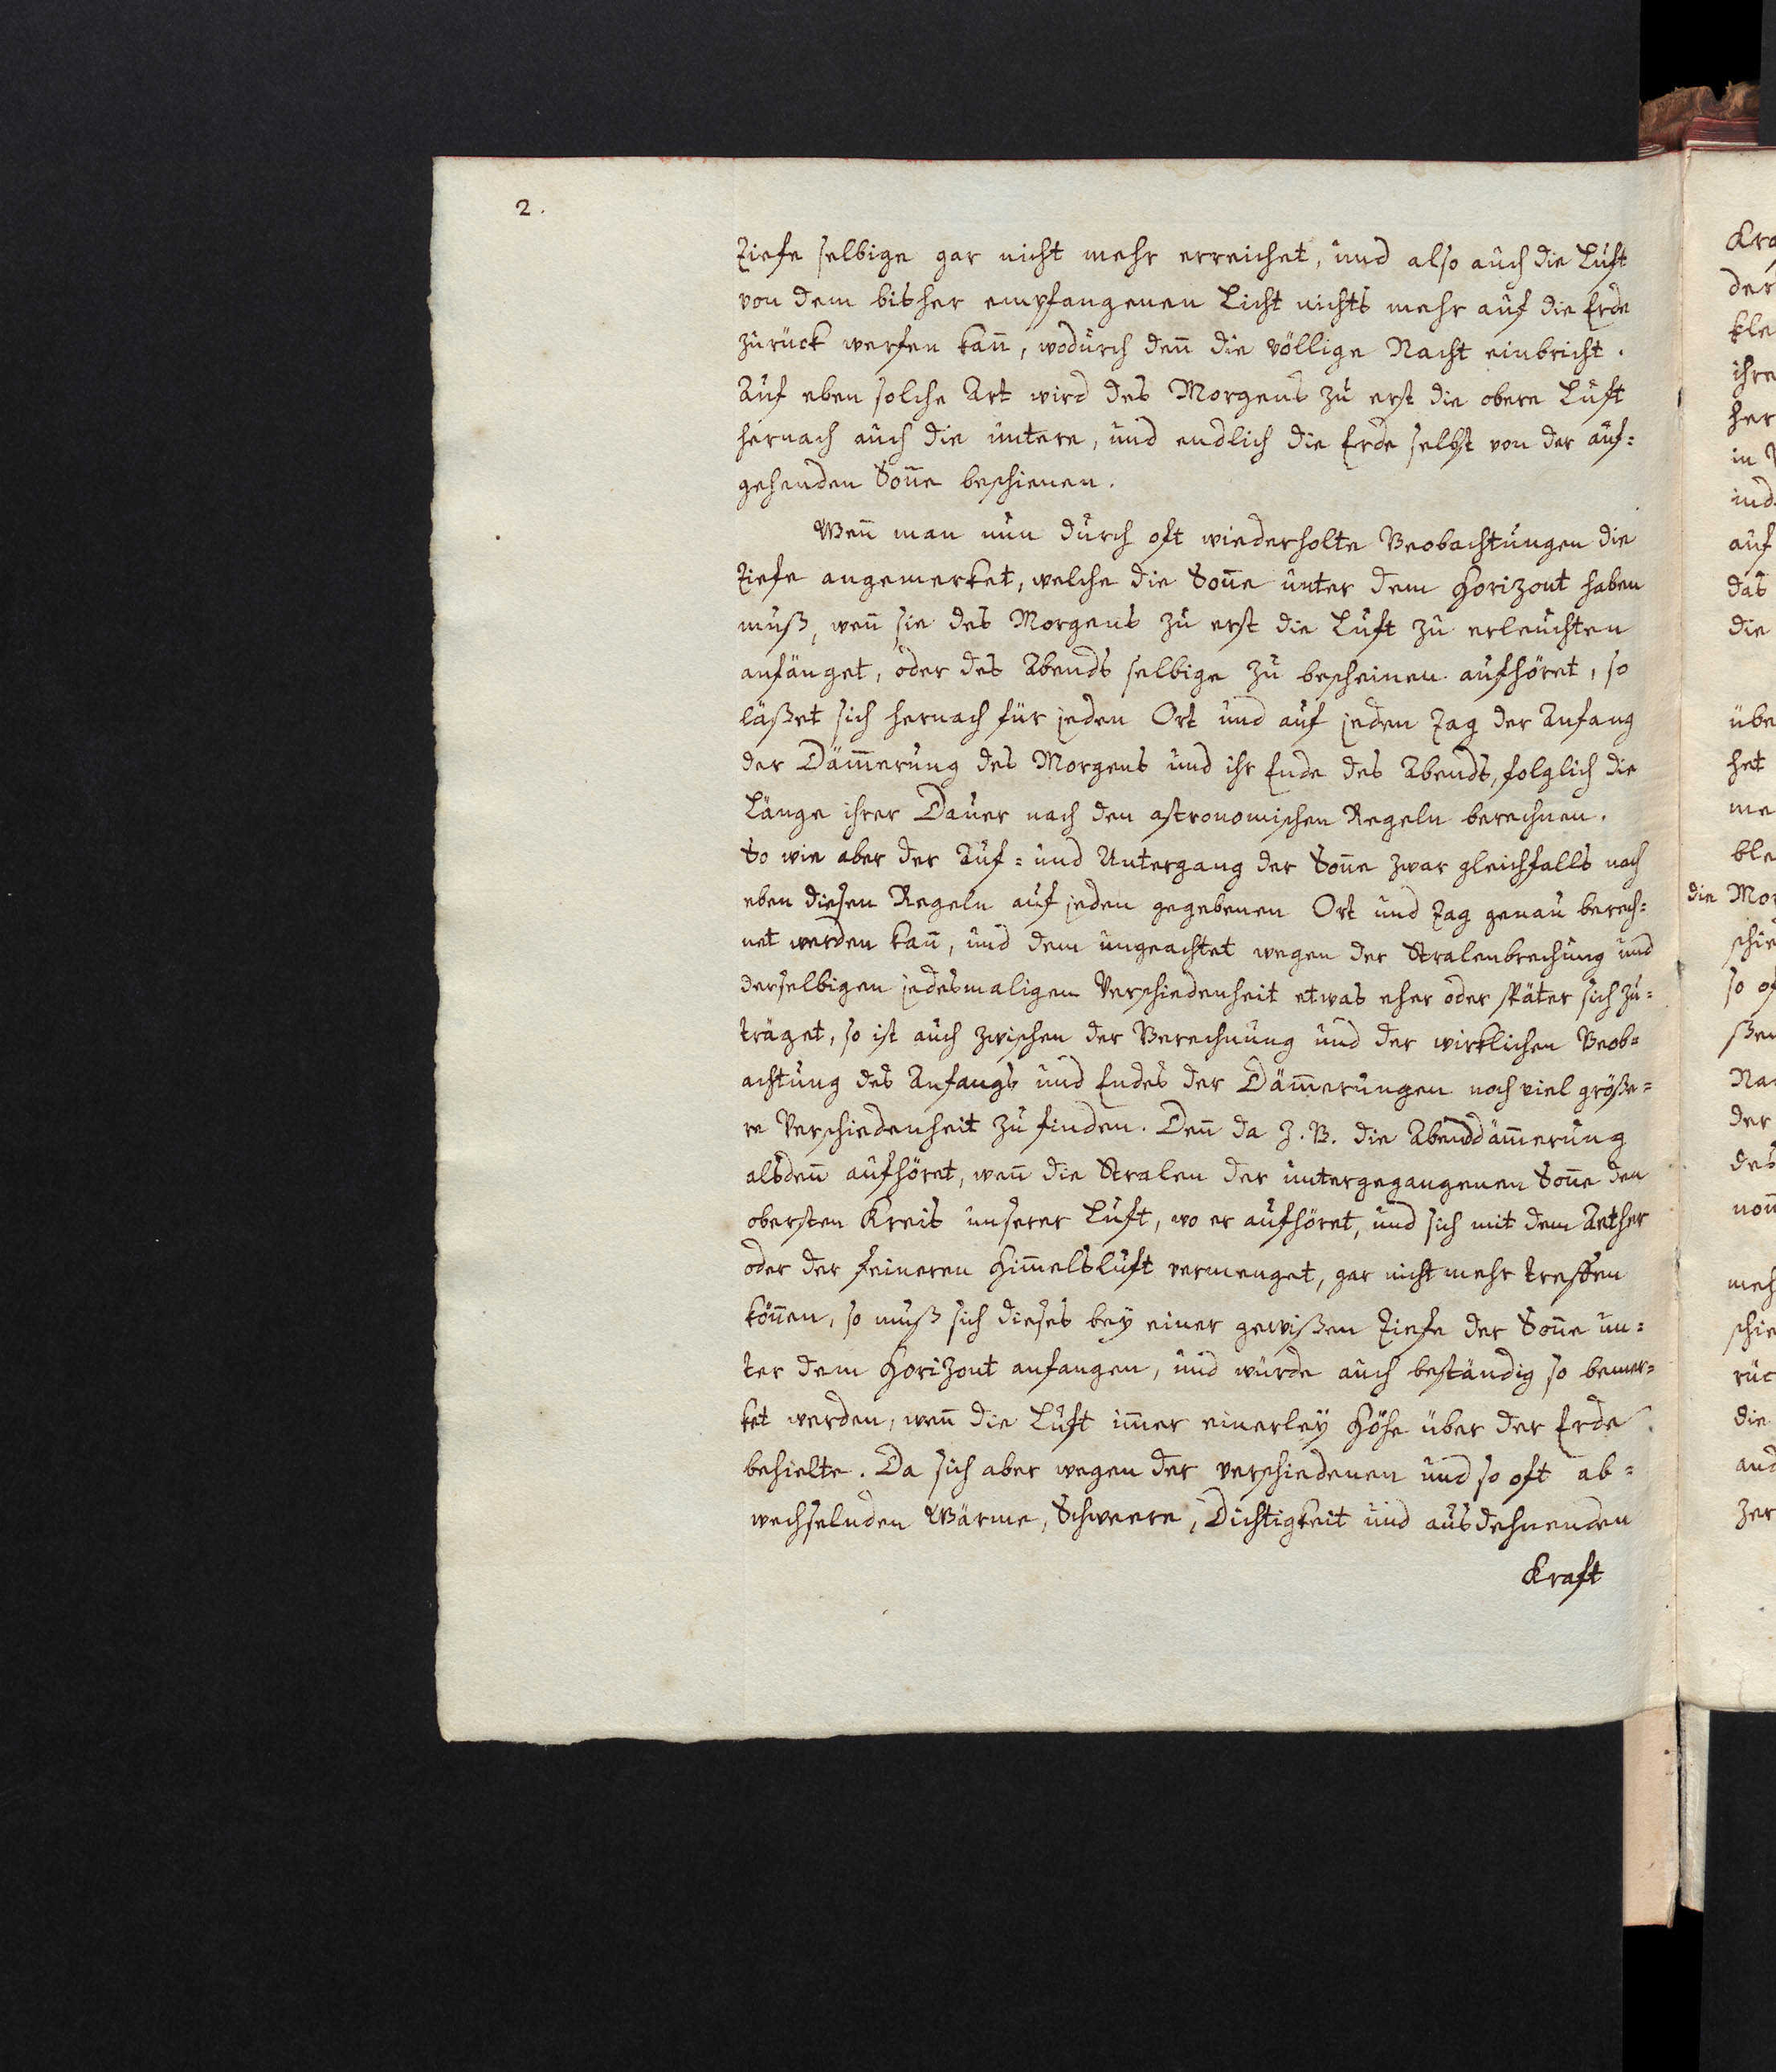 2.
Tiefe selbige gar nicht mehr erreichet, und also auch die Luft
von dem bisher empfangenen Licht nichts mehr auf die Erde
zurück werfen kan̅, wodurch den̅ die völlige Nacht einbricht.
Auf eben solche Art wird des Morgens zu erst die obere Luft
hernach auch die untere, und endlich die Erde selbst von der auf=
gehenden Son̅e beschienen.
Wen̅ man nun durch oft wiederholte Beobachtungen die
Tiefe angemerket, welche die Son̅e unter dem Horizont haben
muß, wen̅ sie des Morgens zu erst die Luft zu erleuchten
anfänget, oder des Abends selbige zu bescheinen aufhöret, so
läßet sich hernach für jeden Ort und auf jeden Tag der Anfang
der Däm̅erung des Morgens und ihr Ende des Abends, folglich die
Länge ihrer Dauer nach den astronomischen Regeln berechnen.
So wie aber der Auf= und Untergang der Son̅e zwar gleichfalls nach
eben diesen Regeln auf jeden gegebenen Ort und Tag genau berech=
net werden kan̅, und dem ungeachtet wegen der Stralenbrechung und
derselbigen jedesmaligen Verschiedenheit etwas eher oder später sich zu=
träget, so ist auch zwischen der Berechnung und der wirklichen Beob=
achtung des Anfangs und Endes der Däm̅erungen noch viel größe=
re Verschiedenheit zu finden. Den̅ da z. B. die Abenddäm̅erung
alsden̅ aufhöret, wen̅ die Stralen der untergegangenen Son̅e den
obersten Kreis unserer Luft, wo er aufhöret, und sich mit dem Aether
oder der feineren Him̅elsluft vermenget, gar nicht mehr treffen
kön̅en, so muß sich dieses bey einer gewißen Tiefe der Son̅e un=
ter dem Horizont anfangen, und würde auch beständig so bemer=
ket werden, wen̅ die Luft im̅er einerleÿ Höhe über der Erde
behielte. Da sich aber wegen der verschiedenen und so oft ab=
wechselnden Wärme, Schweere, Dichtigkeit und ausdehnenden
Kraft
Kra
der
kle
ihre
her
in
ind
auf
das
die
übe
het
me
ble
die Mor
schie
so of
ßen
Nac
der
des
non̅
meh
schie
rüc
die
and
zer